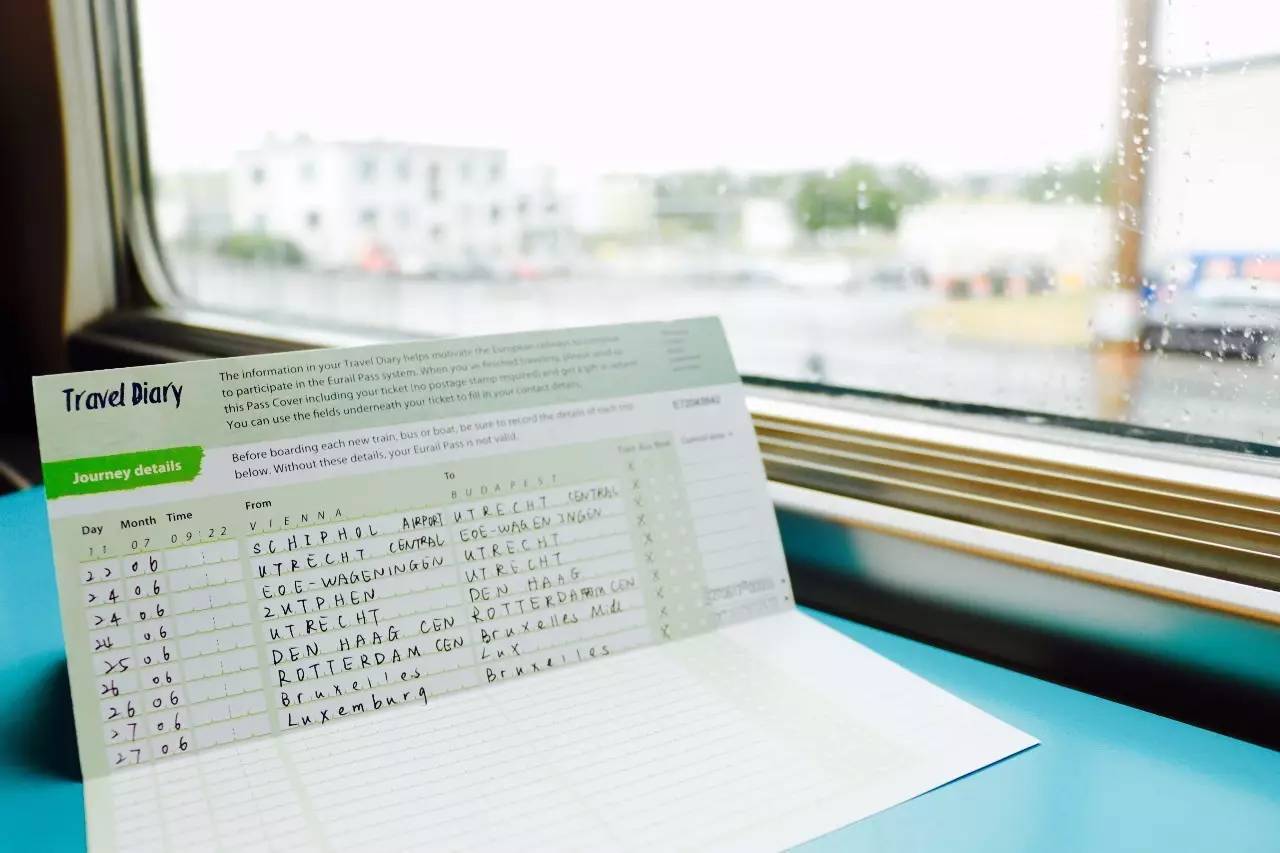 Travel Diary
The information in your Travel Diary helps motivate the European railways to continue
to participate in the Eurail Pass system. When you've finished travelling, please send us
this Pass Cover including your ticket (no postage stamp required) and get a gift in return
You can use the fields underneath your ticket to fill in your contact details.
Journey details
Before boarding each new train, bus or boat, be sure to record the details of each trip
below. Without these details, your Eurail Pass is not valid.
Day Month Time From To Train Bus Boat
11 07 09:22 VIENNA BUDAPEST X
22 06 SCHIPHOL AIRPORT UTRECHT CENTRAL X
24 06 UTRECHT CENTRAL EDE-WAGENINGEN X
24 06 EDE-WAGENINGEN UTRECHT X
24 06 ZUTPHEN UTRECHT X
25 06 UTRECHT DEN HAAG X
26 06 DEN HAAG CEN ROTTERDAM CEN X
26 06 ROTTERDAM CEN Bruxelles Midi X
27 06 Bruxelles Lux X
27 06 Luxemburg Bruxelles